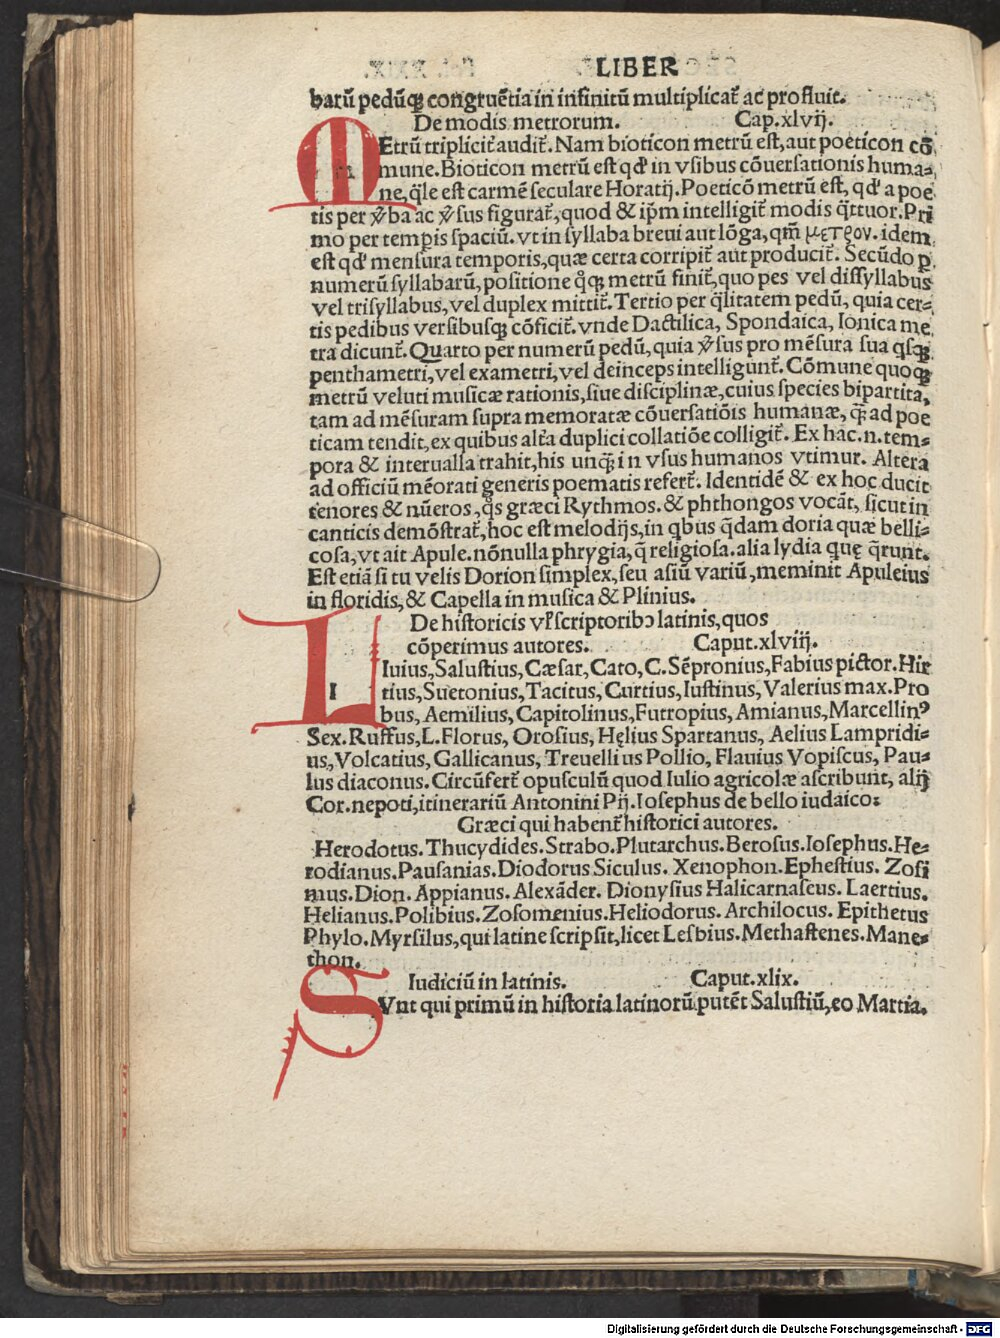 LIBER
barū pedūꝗ congruētia in infinitū multiplicat̄ ac profluit.
De modis metrorum. Cap.xlvij.
MEtrū triplicit̄ audit̄. Nam bioticon metrū est, aut poeticon cō
mune. Bioticon metrū est qđ in vsibus cōuersationis huma⸗
ne, q̄le est carmē seculare Horatij. Poeticō metrū est, qđ a poe
tis per v̄ba ac v̄sus figurat̄, quod & ip̄m intelligit̄ modis q̄ttuor. Pri
mo per tempis spaciū. vt in syllaba breui aut lōga, qm̄ μετρον. idem
est qđ mensura temporis, quæ certa corripit̄ aut producit̄. Secūdo p̱
numerū syllabarū, positione q̊ꝗ metrū finit̄, quo pes vel dissyllabus
vel trisyllabus, vel duplex mittit̄. Tertio per q̄litatem pedū, quia cer⸗
tis pedibus versibusꝗ cōficit̄. vnde Dactilica, Spondaica, Ionica me
tra dicunt̄. Quarto per numerū pedū, quia v̄sus pro mēsura sua qsꝗ
penthametri, vel exametri, vel deinceps intelligunt̄. Cōmune quoꝗ
metrū veluti musicæ rationis, siue disciplinæ, cuius species bipartita,
tam ad mēsuram supra memoratæ cōuersatiōis humanæ, q̄ ad poe
ticam tendit, ex quibus alt̄a duplici collatiōe colligit̄. Ex hac.n.tem⸗
pora & interualla trahit, his unq̄ in vsus humanos vtimur. Altera
ad officiū mēorati generis poematis refert̄. Identidē & ex hoc ducit
tenores & nūeros, q̊s græci Rythmos. & phthongos vocāt, sicut in
canticis demōstrat̄, hoc est melodijs, in qbus q̄dam doria quæ belli⸗
cosa, vt ait Apule. nōnulla phrygia, q̄ religiosa. alia lydia quę q̄runt̄.
Est etiā si tu velis Dorion simplex, seu asiū variū, meminit Apuleius
in floridis, & Capella in musica & Plinius.
De historicis vl̄ scriptoribꝰ latinis, quos
cōperimus autores. Caput.xlviij.
LIuius, Salustius, Cæsar, Cato, C. Sēpronius, Fabius pictor. Hir
tius, Suetonius, Tacitus, Curtius, Iustinus, Valerius max. Pro
bus, Aemilius, Capitolinus, Futropius, Amianus, Marcellinꝰ
Sex. Ruffus, L. Florus, Orosius, Hęlius Spartanus, Aelius Lampridi⸗
us, Volcatius, Gallicanus, Treuellius Pollio, Flauius Vopiscus, Pau⸗
lus diaconus. Circūfert̄ opusculū quod Iulio agricolæ ascribunt, alij
Cor. nepoti, itinerariū Antonini Pij. Iosephus de bello iudaico:
Græci qui habent̄ historici autores.
Herodotus. Thucydides. Strabo. Plutarchus. Berosus. Iosephus. He⸗
rodianus. Pausanias. Diodorus Siculus. Xenophon. Ephestius. Zosi
mus. Dion. Appianus. Alexāder. Dionysius Halicarnaseus. Laertius.
Helianus. Polibius. Zosomenius. Heliodorus. Archilocus. Epithetus
Phylo. Myrsilus, qui latine scripsit, licet Lesbius. Methastenes. Mane⸗
thon.
Iudiciū in latinis. Caput.xlix.
SVnt qui primū in historia latinorū putēt Salustiū, eo Martia.
Digitalisierung gefördert durch die Deutsche Forschungsgemeinschaft - DFG